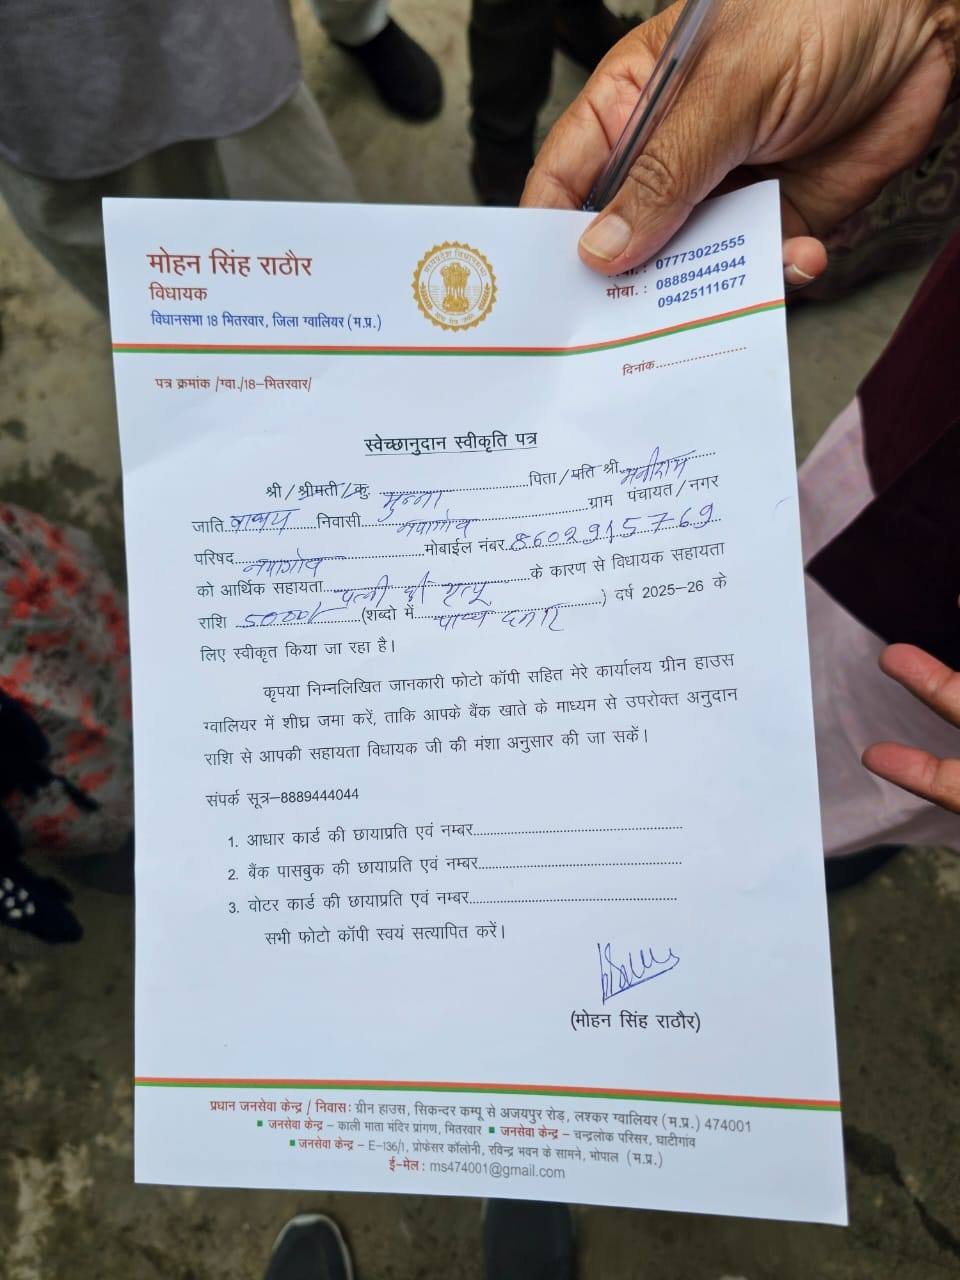 मोहन सिंह राठौर
विधायक
विधानसभा 18 भितरवार, जिला ग्वालियर (म.प्र.)
मध्यप्रदेश विधानसभा
07773022555
मोबा. : 08889444944
09425111677
पत्र क्रमांक /ग्वा./18–भितरवार/
दिनांक.........................
स्वेच्छानुदान स्वीकृति पत्र
श्री / श्रीमती / कु. मुन्ना पिता / पति श्री
जाति निवासी नयागांव ग्राम पंचायत / नगर
परिषद नयागांव मोबाईल नंबर 8602915769
को आर्थिक सहायता पत्नी की मृत्यु के कारण से विधायक सहायता
राशि 5000/- (शब्दो में पाच्च हजार) दर्ष 2025-26 के
लिए स्वीकृत किया जा रहा है।
कृपया निम्नलिखित जानकारी फोटो कॉपी सहित मेरे कार्यालय ग्रीन हाउस
ग्वालियर में शीघ्र जमा करें, ताकि आपके बैंक खाते के माध्यम से उपरोक्त अनुदान
राशि से आपकी सहायता विधायक जी की मंशा अनुसार की जा सकें।
संपर्क सूत्र–8889444044
1. आधार कार्ड की छायाप्रति एवं नम्बर..........................................
2. बैंक पासबुक की छायाप्रति एवं नम्बर..........................................
3. वोटर कार्ड की छायाप्रति एवं नम्बर..........................................
सभी फोटो कॉपी स्वयं सत्यापित करें।
(मोहन सिंह राठौर)
प्रधान जनसेवा केन्द्र / निवास: ग्रीन हाउस, सिकन्दर कम्पू से अजयपुर रोड़, लश्कर ग्वालियर (म.प्र.) 474001
जनसेवा केन्द्र – काली माता मंदिर प्रांगण, भितरवार ■ जनसेवा केन्द्र – चन्द्रलोक परिसर, घाटीगांव
जनसेवा केन्द्र – E-136/1, प्रोफेसर कॉलोनी, रविन्द्र भवन के सामने, भोपाल (म.प्र.)
ई-मेल : ms474001@gmail.com